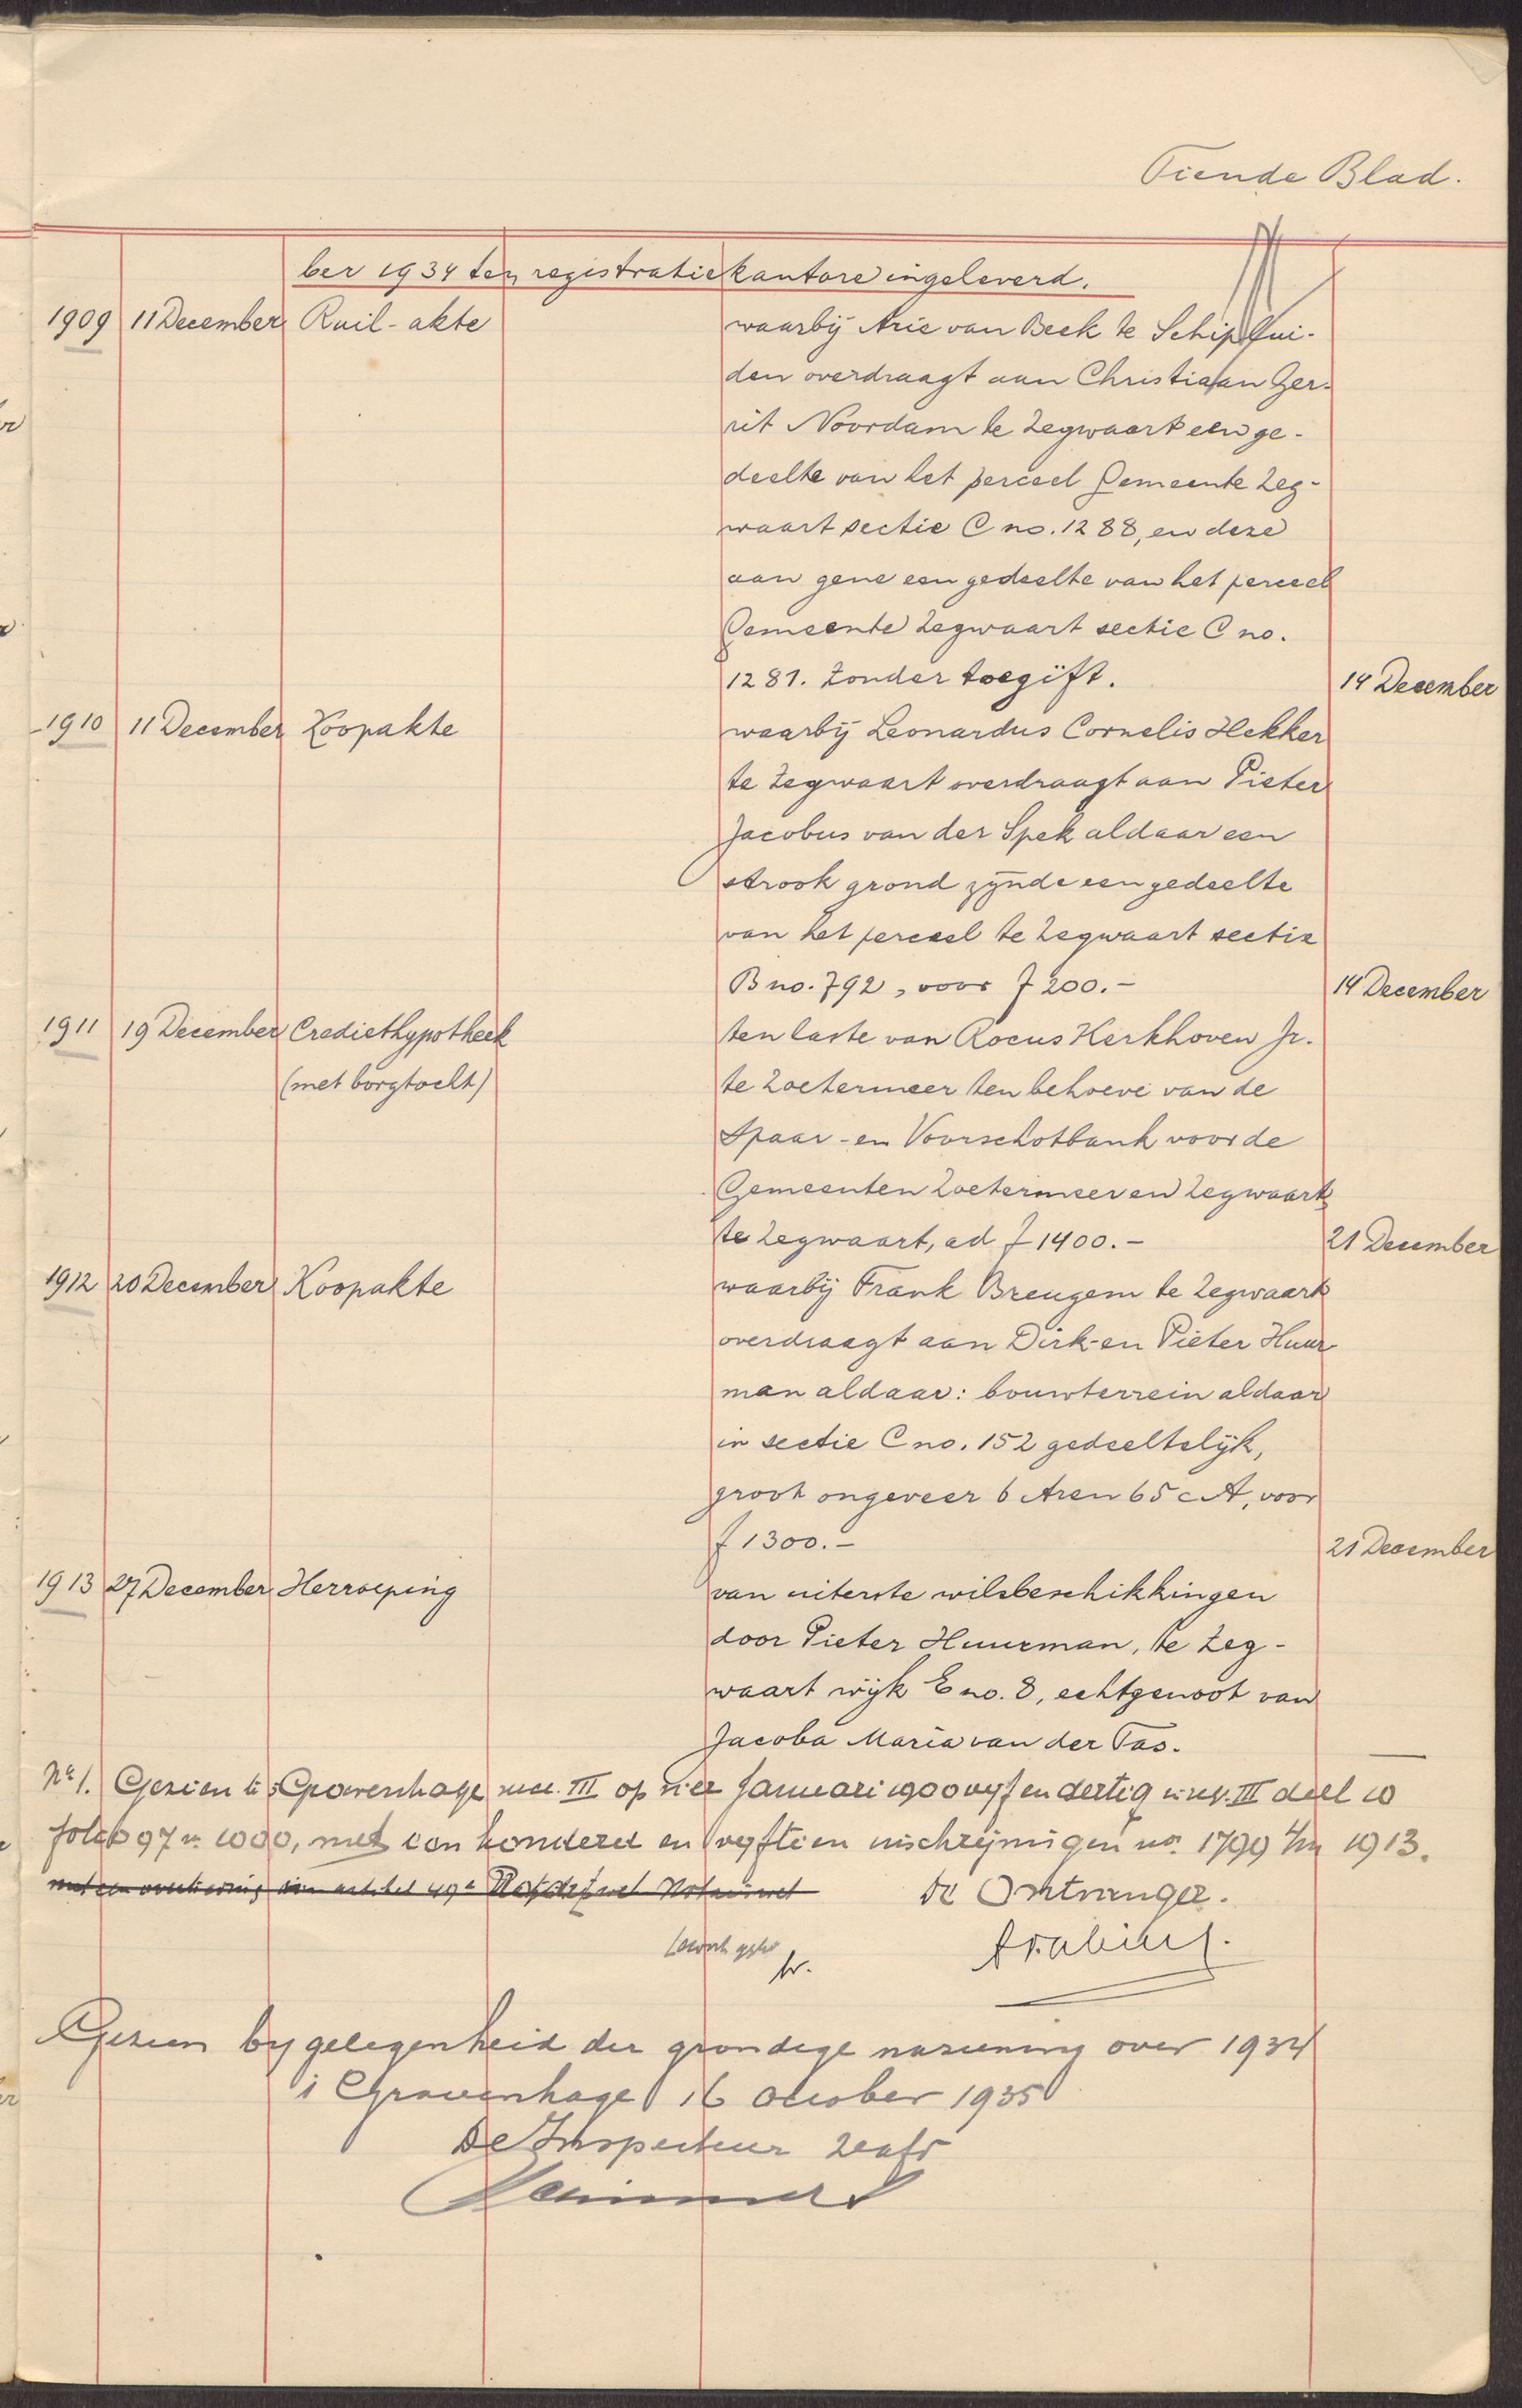 Tiende Blad.
ber 1934 ten registratiekantore ingeleverd.
1909 11 December Ruil-akte waarbij Arie van Beek te Schiplui-
den overdraagt aan Christiaan Ger-
rit Noordam te Zegwaart een ge-
deelte van het perceel Gemeente Zeg-
waart sectie C no. 1288, en deze
aan gene een gedeelte van het perceel
Gemeente Zegwaart sectie C no.
1281. Zonder toegift. 14 December
1910 11 December Koopakte waarbij Leonardus Cornelis Hekker
te Zegwaart overdraagt aan Pieter
Jacobus van der Spek aldaar een
strook grond zijnde een gedeelte
van het perceel te Zegwaart sectie
B no. 792, voor f 200.- 14 December
1911 19 December Crediethypotheek ten laste van Rocus Kerkhoven Jr.
(met borgtocht) te Zoetermeer ten behoeve van de
Spaar- en Voorschotbank voor de
Gemeenten Zoetermeer en Zegwaart
te Zegwaart, ad f 1400.- 21 December
1912 20 December Koopakte waarbij Frank Breugem te Zegwaart
overdraagt aan Dirk en Pieter Huur-
man aldaar: bouwterrein aldaar
in sectie C no. 152 gedeeltelijk,
groot ongeveer 6 Aren 65 cA, voor
f 1300.- 21 December
1913 27 December Herroeping van uiterste wilsbeschikkingen
door Pieter Huurman, te Zeg-
waart wijk E no. 8, echtgenoot van
Jacoba Maria van der Tas.
No 1. Gezien te 's Gravenhage III op vier Januari 1900 vijf en dertig III deel 10
folio 97 no 1000, met een honderd en vijftien inschrijvingen no. 1799 t/m 1913.
De Ontvanger.
Gezien by gelegenheid der grondige naziening over 1934
's Gravenhage 16 October 1935
De Inspecteur